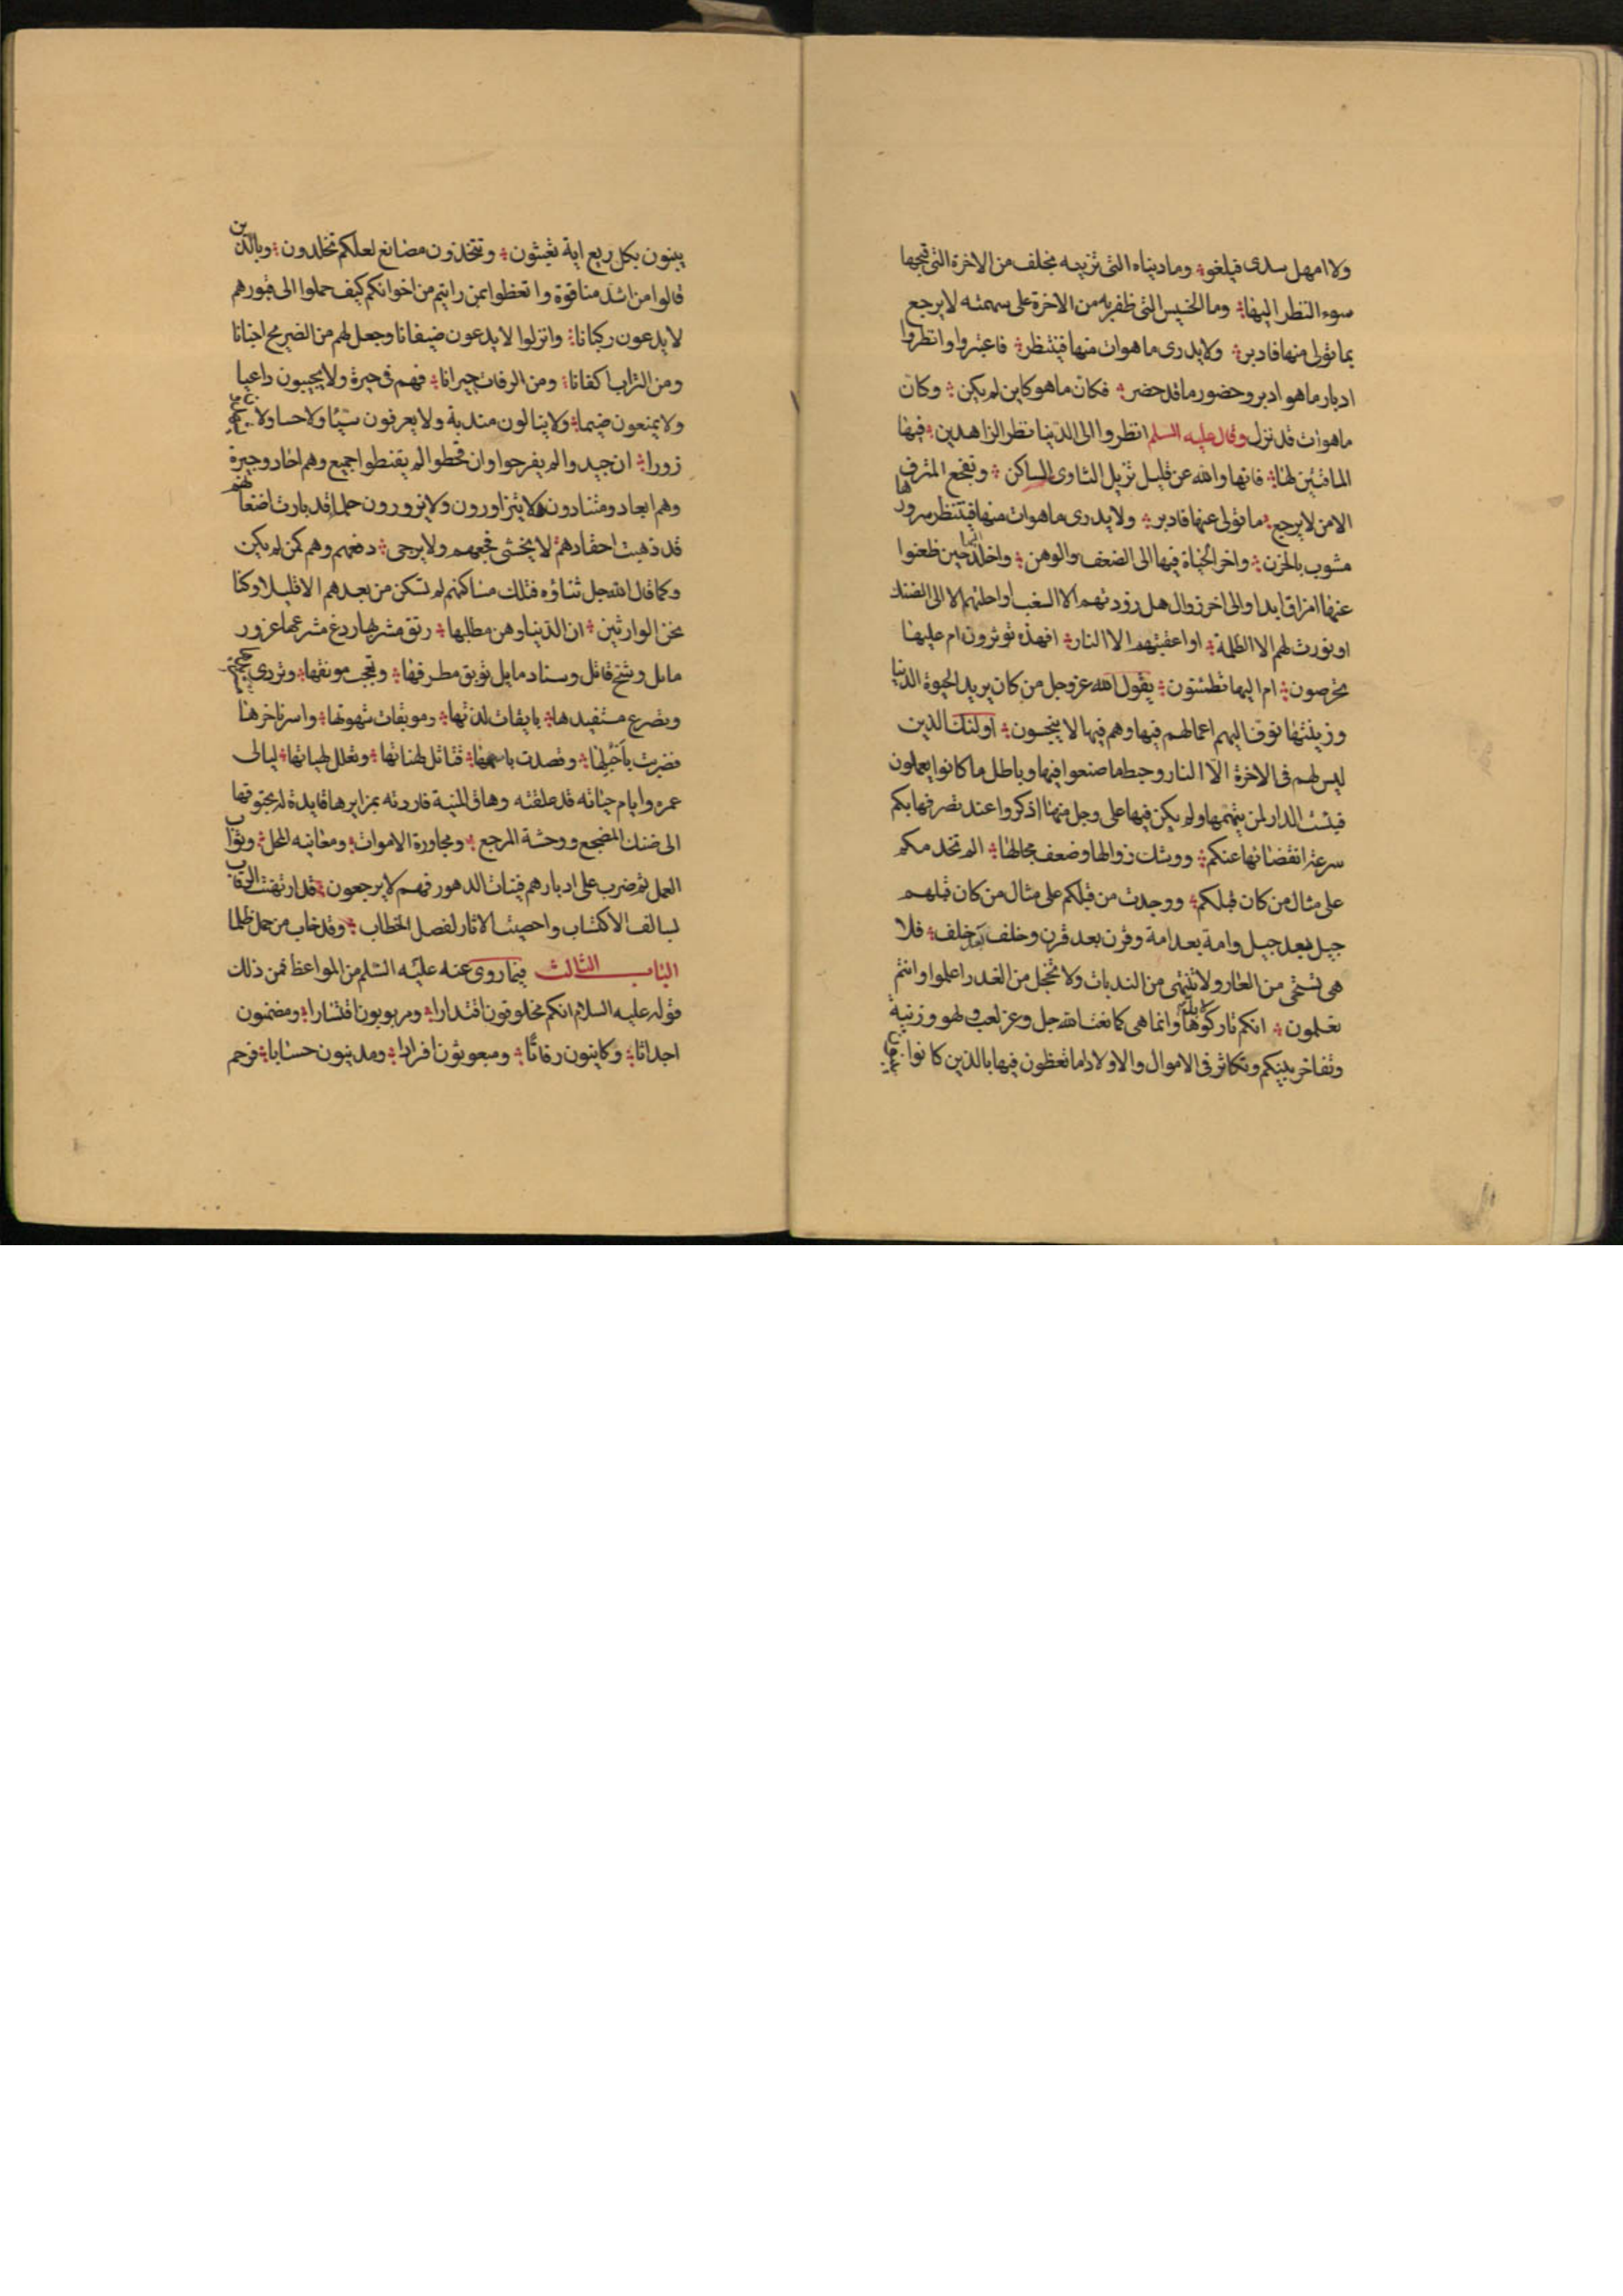 ولا امهل سدى فيلغو وما دنياه التى تزينه بخلف من الاخرة التى قبحها
سوء النظر اليها وما الخسيس الذى ظفر به من الاخرة على سهمته لا يرجع
بما تولى منها فادبر ولا يدرى ما هوات منها فينتظر فاعتبروا وانظروا
ادبار ما هو ادبر وحضور ما قد حضر فكان ما هو كاين لم يكن وكان
ماهوات قد نزل وقال عليه السلم انظروا الى الدنيا نظر الزاهدين فيها
فانها والله عن قليل تزيل الثاوى الساكن وتفجع المترف
الامن لا يرجع ما تولى عنها فادبر ولا يدرى ماهوات منها فينتظر سرورها
مشوب بالحزن واخر الحياة فيها الى الضعف والوهن حين ظعنوا
عنها والى اخر زوال هل زودتهم الا السغب او احلتهم الا الى الضنك
او نورت لهم الا الظلمة او اعقبتهم الا النار افهذه توثرون ام عليها
تحرصون ام اليها تطمئنون يقول الله عز وجل من كان يريد الحيوة الدنيا
وزينتها نوف اليهم اعمالهم فيها وهم فيها لا يبخسون اولئك الذين
ليس لهم فى الاخرة الا النار وحبط ما صنعوا فيها وباطل ما كانوا يعملون
فبئست الدار لمن يتهمها ولم يكن فيها على وجل منها اذكروا عند تصرفها بكم
سرعة انقضائها عنكم ووشك زوالها وضعف مجالها الم تجدكم
على مثال من كان قبلكم ووجدت من قبلكم على مثال من كان قبلهم
جيل بعد جيل وامة بعد امة وقرن بعد قرن وخلف بعد خلف فلا
هى تستحى من العار ولا تنتهى من الندبات ولا تخجل من الغدر اعلموا وانتم
تعلمون انكم تاركوها لابد وانما هى كما نعت الله جل وعز لعب ولهو وزينة
وتفاخر بينكم وتكاثر فى الاموال والاولاد اما تعظون فيها بالذين كانوا
يبنون بكل ريع اية تعبثون وتتخذون مصانع لعلكم تخلدون وبالذين
قالوا من اشد منا قوة واتعظوا بمن رايتم من اخوانكم كيف حملوا الى قبورهم
لا يدعون ركبانا وانزلوا لا يدعون ضيفانا وجعل لهم من الضريح اجنانا
ومن التراب اكفانا ومن الرفات جيرانا فهم فى جيرة ولا يجيبون داعيا
ولا يمنعون ضيما ولا ينالون مندبة ولا يعرفون شيئا ولا حسا ولا
زورا ان جيدوا لم يفرحوا وان قحطوا لم يقنطوا جميع وهم احاد وجيرة
وهم ابعاد ومتنادون لا يتزاورون ولا يزورون حلما قد بارت اضغانهم
قد ذهبت احقادهم لا يخشى فجعهم ولا يرجى دفعهم وهم كمن لم يكن
وكما قال الله جل ثناؤه فتلك مساكنهم لم تسكن من بعدهم الا قليلا وكنا
نحن الوارثين ان الدنيا وهن مطلبها رنق مشربها ردغ مشرعها غرور
مائل وشبح فاتل وسناد مايل توبق مطرفها وتعجب مونقها وتردى
وتصرع مستفيدها بايقات لذتها وموبقات شهوتها واسر نافرها
وقصدت باسهمها لهناتها وتعلل لهباتها ليالى
عمره وايام حياته قد علقته وهاق المنية فاردته بمرايرها قايدة له بحتوفها
الى ضنك المضجع ووحشة المرجع ومجاورة الاموات ومعاينة المحل وثواب
العمل ثم ضرب على ادبارهم فينات الدهور فهم لا يرجعون قد ارتهنت الرقاب
بسالف الاكتساب واحصيت الاثار لفصل الخطاب وقد خاب من حمل ظلما
الباب الثالث فيما روى عنه عليه السلم من المواعظ فمن ذلك
قوله عليه السلام انكم مخلوقون اقتدارا ومربوبون اقتسارا ومضمنون
اجداثا وكاينون رفاتا ومبعوثون افرادا ومدينون حسابا فرحم